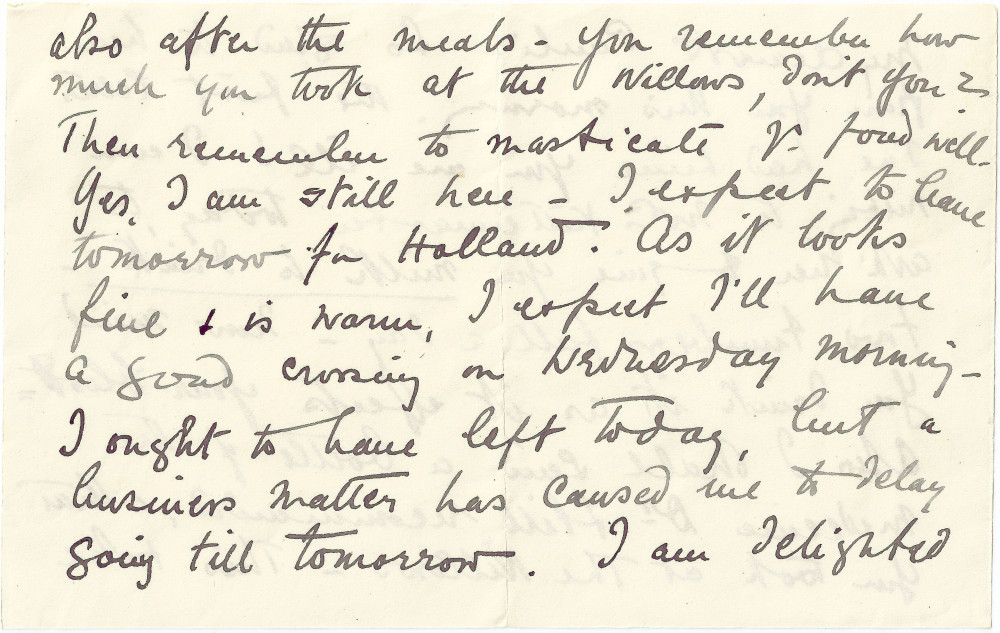 also after the meals - You remember how
much you took at the Willows, don't you?
Then remember to masticate yr. food well -
Yes, I am still here - I expect to leave
tomorrow for Holland. As it looks
fine & is warm, I expect I'll have
a good crossing on Wednesday morning -
I ought to have left today, but a
business matter has caused me to delay
going till tomorrow. I am delighted